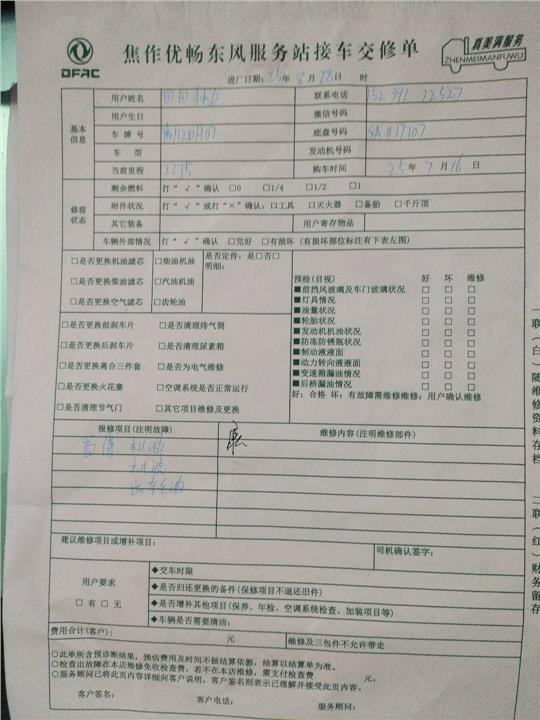 DFAC
焦作优畅东风服务站接车交修单
真美满服务
ZHENMEIMANFUWU
进厂日期: 25年 8月 28日 时
基本信息
用户姓名 联系电话
用户生日 微信号码
车牌号 底盘号码 SA017107
车型 发动机号码
当前里程 2275 购车时间 25年 7月 16日
修前状态
剩余燃料 打“√”确认 □0 □1/4 □1/2 □1
附件状况 打“√”或打“×”确认: □工具 □灭火器 □备胎 □千斤顶
其它装备 用户寄存物品
车辆外部情况 打“√”确认 □完好 □有损坏 (有损坏部位标注有下表左图)
□是否更换机油滤芯 □柴油机油 是否定件: 是□否□
明细:
□是否更换柴油滤芯 □汽油机油
□是否更换空气滤芯 □齿轮油
□是否更换前刹车片 □是否清理排气筒
□是否更换后刹车片 □是否清理尿素箱
□是否更换离合三件套 □是否为电气维修
□是否更换火花塞 □空调系统是否正常运行
□是否清理节气门 □其它项目维修及更换
预检(目视) 好 坏 维修
■前挡风玻璃及车门玻璃状况 □ □ □
■灯具情况 □ □ □
■油量状况 □ □ □
■轮胎状况 □ □ □
■发动机机油状况 □ □ □
■防冻防锈瓶状况 □ □ □
■制动液液面 □ □ □
■动力转向液液面 □ □ □
■变速箱漏油情况 □ □ □
■后桥漏油情况 □ □ □
好: 合格 坏: 有故障需维修维修: 用户确认维修
报修项目(注明故障) 维修内容(注明维修部件)
首保 机油
机滤
建议维修项目或增补项目:
司机确认签字:
用户要求
□有 □无
◆交车时限
◆是否归还更换的备件(保修项目不退还旧件)
◆是否增补其他项目(保养、年检、空调系统检查、加装项目等)
◆车辆是否需要清洁:
费用合计(客户): 元 维修及三包件不允许带走
○此单所含预诊断结果, 预估费用及时间不做结算依据, 结算以结算单为准。
○检查出故障在本店维修免收检查费, 若不在本店维修, 需支付检查费 元。
○服务顾问已将此页内容详细向客户说明, 客户签名则表示已理解并接受此页内容。
客户签名: 客户电话: 服务顾问:
一联(白)随维修资料存档
二联(红)财务留存